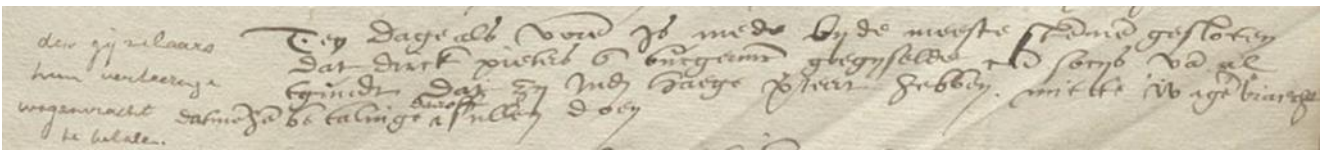 den gijzelaars
hun verteringe
wagenvracht
te betalen.
Ten dage als voren Is mede bijde meeste stemen gesloten
dat dirck pieters burgermr gegyselde socys van al
tgundt dat zy Indn haege verteert hebben. mitte wagevracht
datmen betalinge daeroff sullen doen